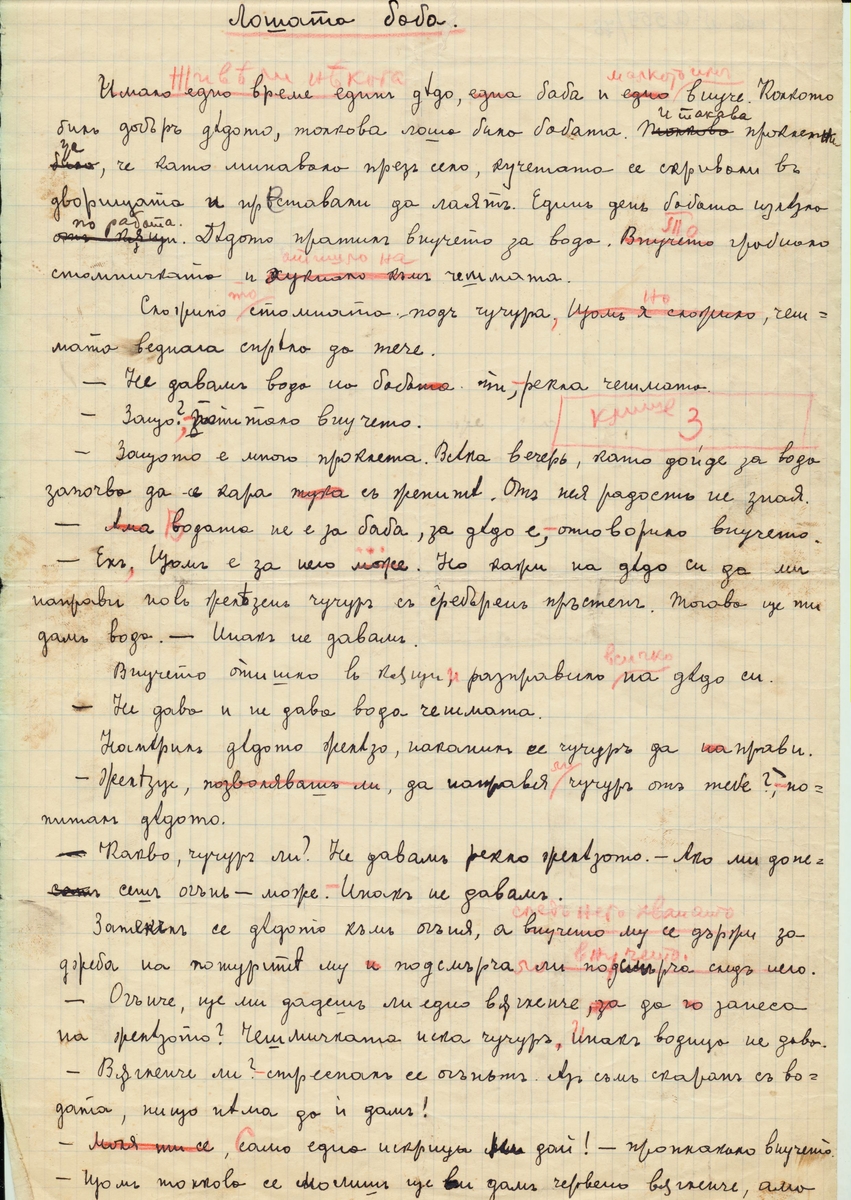 Лошата баба.
Живѣли нѣкога малкото имъ
Имало едно време единъ дѣдо, една баба и едно внуче. Колкото
билъ добъръ дѣдото, толкова лоша била бабата. И такава проклетни
ца, че като минавала презъ село, кучетата се скривали въ
дворищата и прѣставали да лаятъ. Единъ день бабата излѣзла
по работа. Дѣдото пратилъ внучето за вода. То
Внучето грабнало
отишло на
стомничката и хукнало къмъ чешмата.
то но
Сложило стомната подъ чучура, Щомъ я сложило, чеш=
мата веднага спрѣла да тече.
— Не давамъ вода на бабата ти, рекла чешмата.
— Защо? попитало внучето.
клише 3
— Защото е много проклета. Всѣка вечерь, като дойде за вода
започва да се кара тука съ женитѣ. Отъ нея радость не зная.
— Ама водата не е за баба, за дѣдо е, — отговорило внучето.
— Ехъ, Щомъ е за него може. Но кажи на дѣдо си да ми
направи новъ желѣзенъ чучуръ съ сребъренъ пръстенъ. Тогава ще ти
дамъ вода. — Инакъ не давамъ.
всичко
Внучето отишло въ кѫщи, и разправило на дѣдо си.
— Не дава и не дава вода чешмата.
Намѣрилъ дѣдото желѣзо, наканилъ се чучуръ да направи.
— Желѣзце, позволявашъ ли, да направя чучуръ отъ тебе?, по=
питалъ дѣдото.
— Какво, чучуръ ли? Не давамъ рекло желѣзото. — Ако ми доне=
сешъ огънь — може. Инакъ не давамъ.
следъ него хванато
Затеклъ се дѣдото къмъ огъня, а внучето му се държи за
внучето.
дреба на потуритѣ му и подсмърча ли подсмърча следъ него.
— Огънче, ще ми дадешъ ли едно вѫгленче, за да го занеса
на желѣзото? Чешмичката иска чучуръ, Инакъ водица не дава.
— Вѫгленче ли? — стресналъ се огъньтъ. Азъ съмъ скаранъ съ во=
дата, нищо нѣма да ѝ дамъ!
— Моля ти се, само една искрица ми дай! — проплакало внучето.
— Щомъ толкова се молишъ ще ви дамъ червено вѫгленче, ама